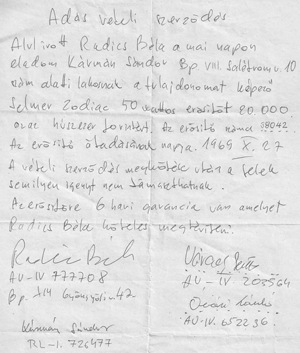 Adás vételi szerződés
Alulírott Radics Béla a mai napon
eladom Kármán Sándor Bp. VIII. u. 10
szám alatti lakosnak a tulajdonomat képező
Selmer Zodiac 50 wattos erősítőt 20 000
azaz húszezer forintért. Az erősítő száma 38042
Az erősítő átadásának napja. 1969 X. 27
A vételi szerződés megkötése után a felek
semilyen igényt nem támaszthatnak.
Az erősítőre 6 havi garancia van amelyet
Radics Béla köteles megtéríteni.
Radics Béla
AU-IV 777708
Bp. XIV Gyöngyösi u 42
AU-IV 203564
AU-IV. 652236
Kármán Sándor
RL-I. 726477